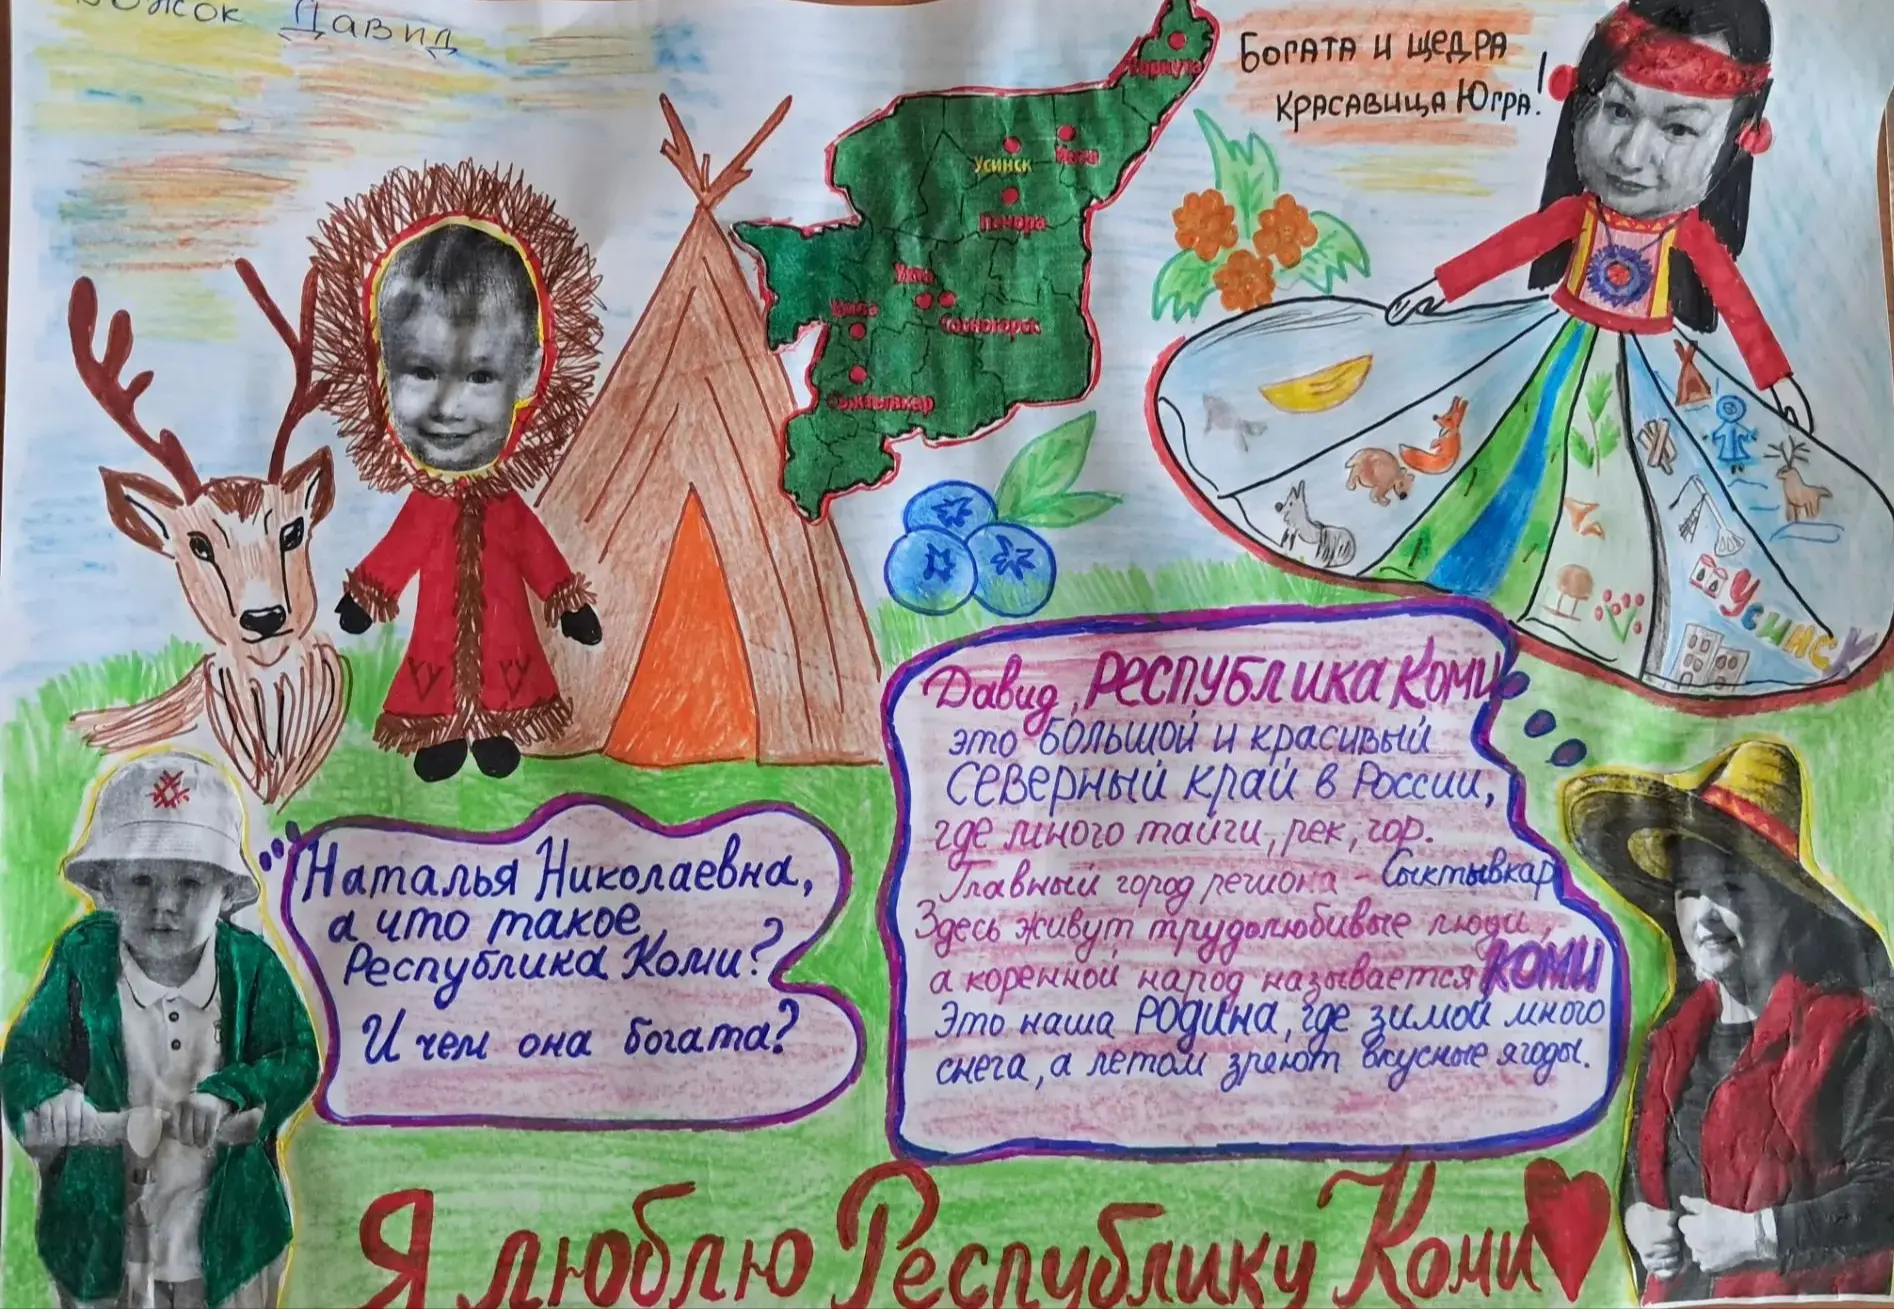 Давид
Богата и щедра
красавица Югра!
Воркута
Усинск
Инта
Печора
Ухта
Сосногорск
Сыктывкар
Усинск
Наталья Николаевна,
а что такое
Республика Коми?
И чем она богата?
Давид, Республика Коми
это большой и красивый
северный край в России,
где много тайги, рек, гор.
Главный город региона - Сыктывкар
Здесь живут трудолюбивые люди,
а коренной народ называется КОМИ
Это наша РОДИНА, где зимой много
снега, а летом зреют вкусные ягоды.
Я люблю Республику Коми